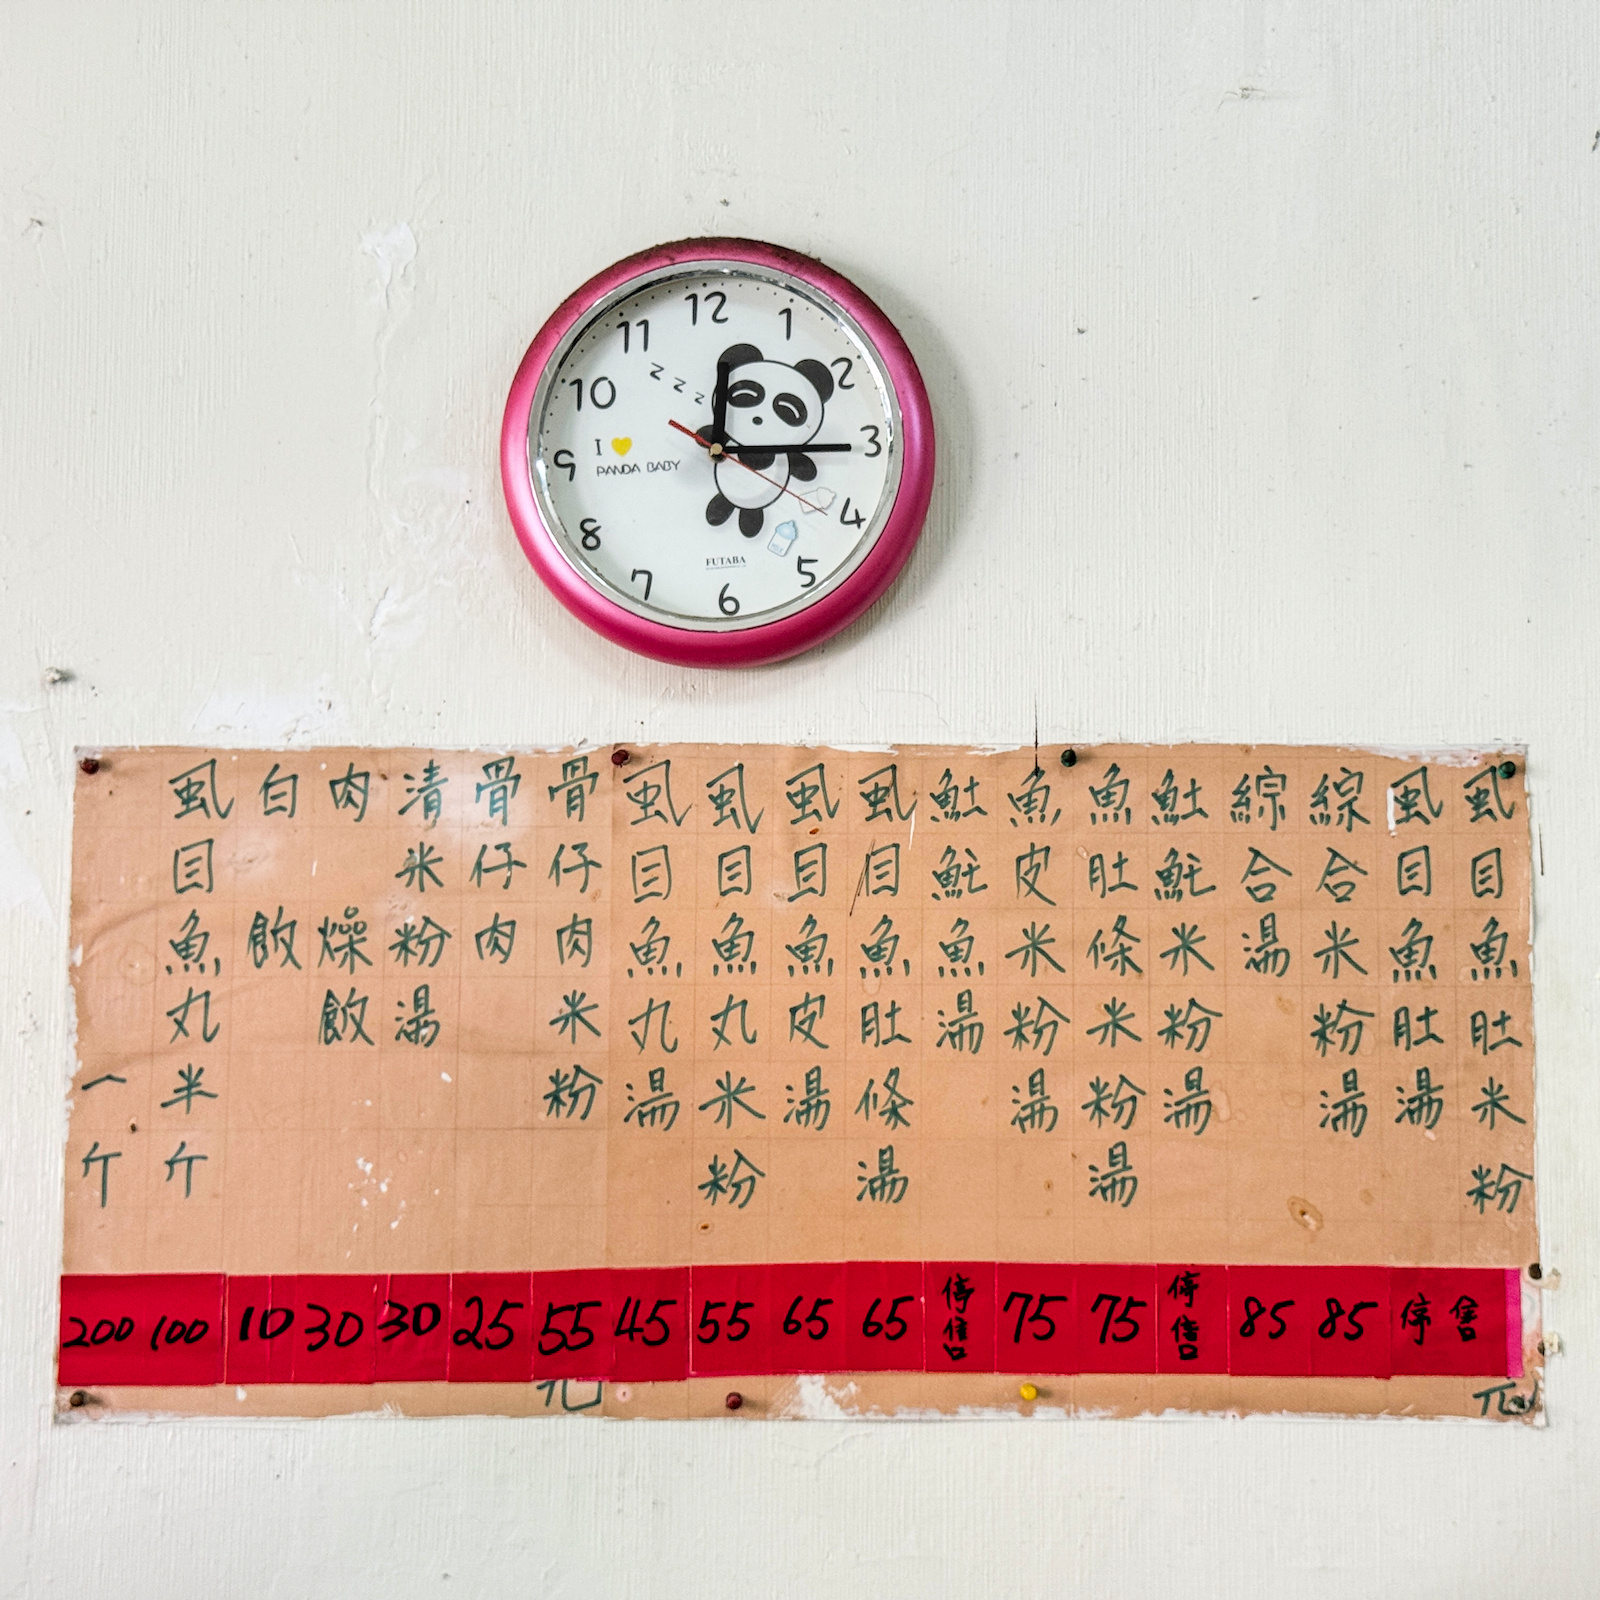 12
1
2
3
4
5
6
7
8
9
10
11
z z z
I
PANDA BABY
MILK
FUTABA
虱目魚肚米粉
虱目魚肚湯
停售
綜合米粉湯
85
綜合湯
85
𩵚魠米粉湯
停售
魚肚條米粉湯
75
魚皮米粉湯
75
𩵚魠魚湯
停售
虱目魚肚條湯
65
虱目魚皮湯
65
虱目魚丸米粉
55
虱目魚丸湯
45
骨仔肉米粉
55
骨仔肉
25
清米粉湯
30
肉燥飯
30
白飯
10
虱目魚丸半斤
100
一斤
200
元
元